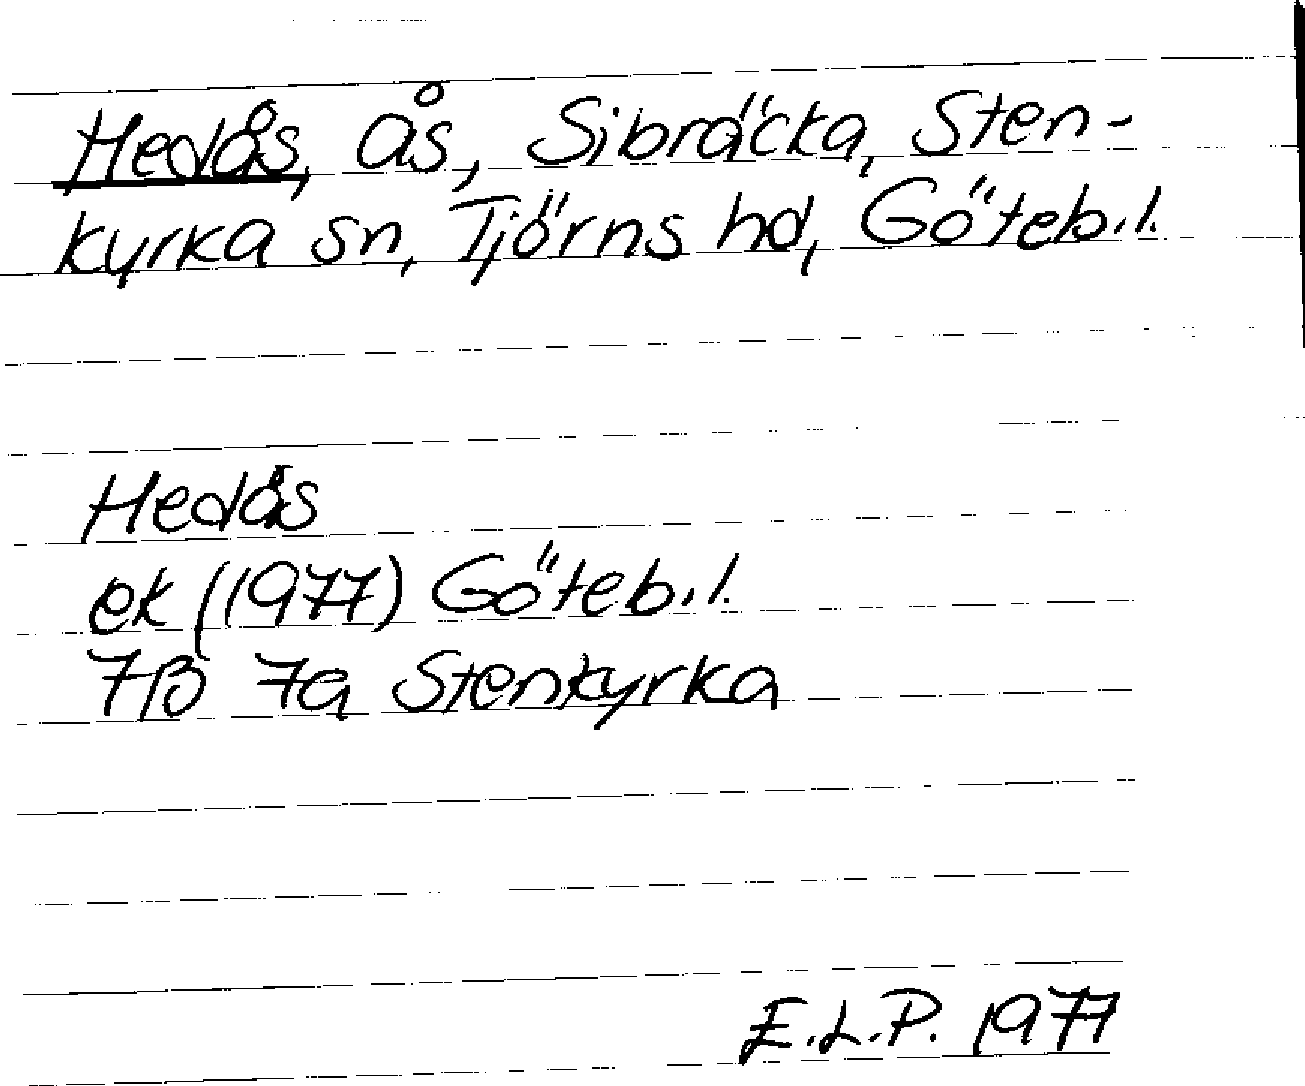 Hedås, ås, Sibräcka, Sten-
kyrka sn, Tjörns hd, Göteb.l.
Hedås
ek (1977) Göteb.l.
7B 7a Stenkyrka
E.L.P. 1977